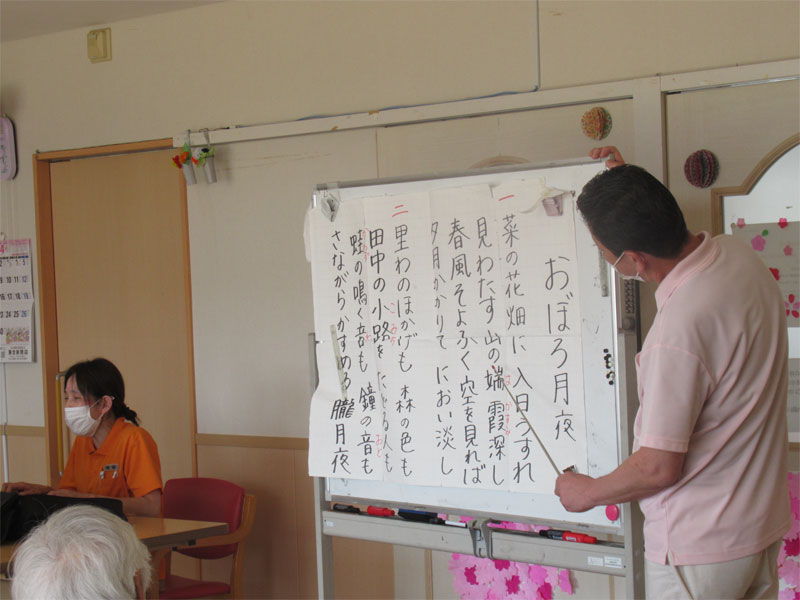 おぼろ月夜
一 菜の花畑に 入日うすれ
見わたす山の端 霞深し
春風そよふく空を見れば
夕月かかりて におい淡し
二 里わのほかげも 森の色も
田中の小路をたどる人も
蛙の鳴く音も 鐘の音も
さながらかすめる 朧月夜